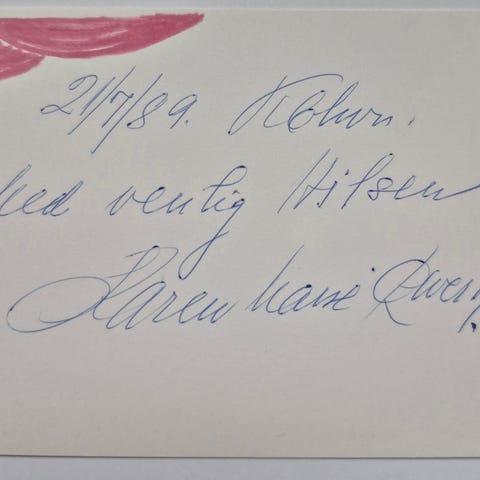 21/7/89. Kbhvn.
Med venlig Hilsen
Karen Marie Løwert.